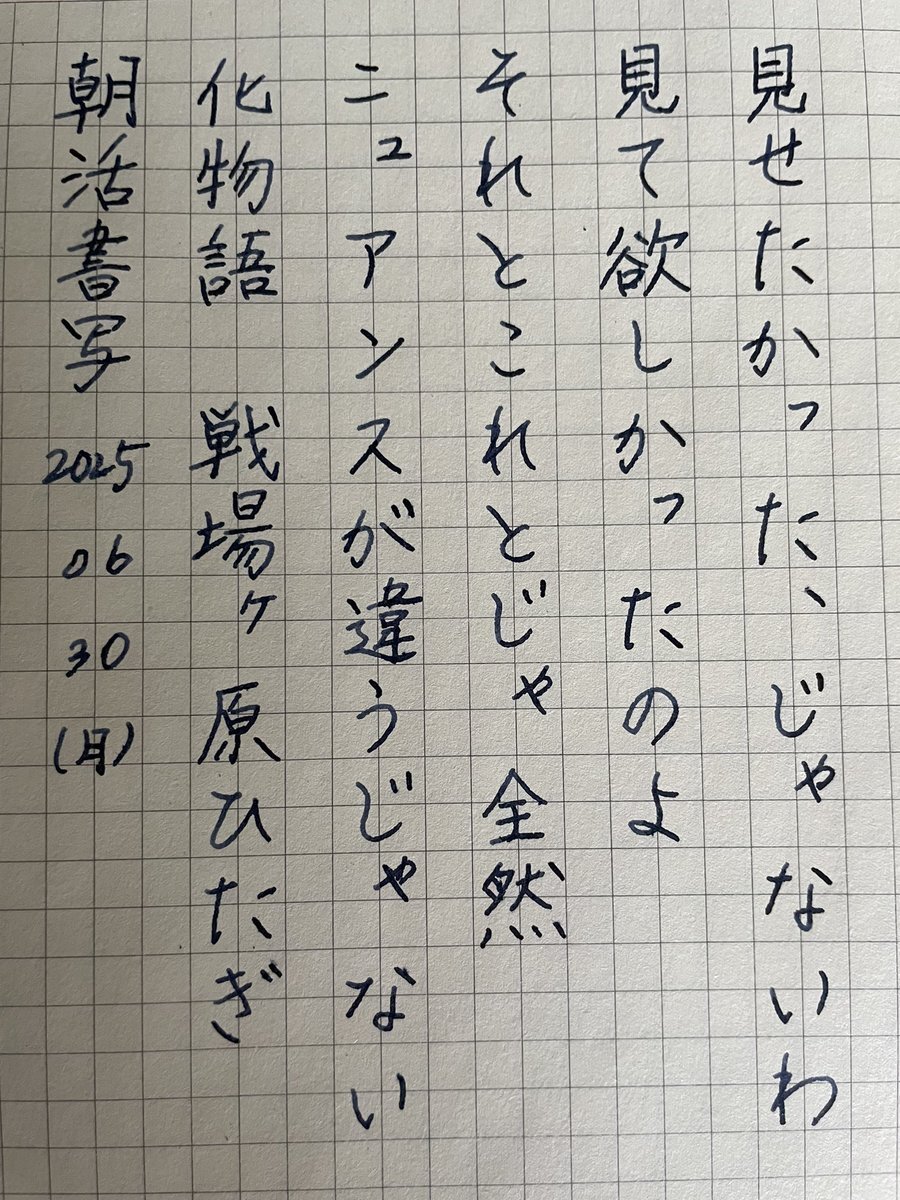 見せたかった、じゃないわ
見て欲しかったのよ
それとこれとじゃ全然
ニュアンスが違うじゃない
化物語 戦場ヶ原ひたぎ
朝活書写 2025 06 30 (月)